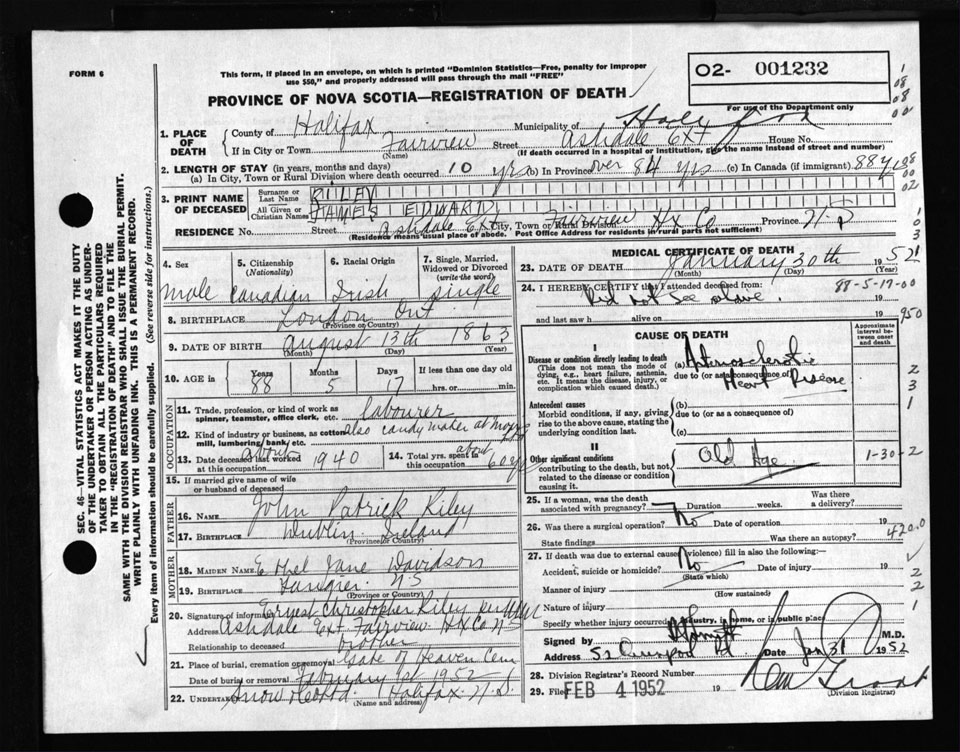 FORM 6
This form, if placed in an envelope, on which is printed "Dominion Statistics—Free, penalty for improper
use $50," and properly addressed will pass through the mail "FREE"
O2- 001232
PROVINCE OF NOVA SCOTIA—REGISTRATION OF DEATH
For use of the Department only
1. PLACE OF DEATH County of Halifax Municipality of Halifax
If in City or Town Fairview (Name) Street Ashdale Ext House No.
(If death occurred in a hospital or institution, give the name instead of street and number)
2. LENGTH OF STAY (in years, months and days)
(a) In City, Town or Rural Division where death occurred 10 yrs (b) In Province over 84 yrs (c) In Canada (if immigrant) 88 yrs
3. PRINT NAME OF DECEASED Surname or Last Name RILEY
All Given or Christian Names JAMES EDWARD
RESIDENCE No. Street Ashdale Ext City, Town or Rural Division Fairview Hx Co Province N S
(Residence means usual place of abode. Post Office Address for residents in rural parts not sufficient)
4. Sex male
5. Citizenship (Nationality) Canadian
6. Racial Origin Irish
7. Single, Married, Widowed or Divorced (write the word) single
8. BIRTHPLACE London Ont (Province or Country)
9. DATE OF BIRTH August 13th 1863
(Month) (Day) (Year)
10. AGE in Years 88 Months 5 Days 17 If less than one day old hrs. or min.
OCCUPATION
11. Trade, profession, or kind of work as spinner, teamster, office clerk, etc. labourer
12. Kind of industry or business, as cotton mill, lumbering, bank, etc. also candy maker at
13. Date deceased last worked at this occupation about 1940
14. Total yrs. spent at this occupation about 60 yrs
15. If married give name of wife or husband of deceased
FATHER
16. Name John Patrick Riley
17. Birthplace Dublin Ireland (Province or Country)
MOTHER
18. MAIDEN NAME Ethel Jane Davidson
19. BIRTHPLACE N S (Province or Country)
20. Signature of informant Ernest Christopher Riley per
Address Ashdale Ext Fairview Hx Co N S
Relationship to deceased brother
21. Place of burial, cremation or removal Gate of Heaven Cem
Date of burial or removal February 1st 1952
22. UNDERTAKER Snow & Co Ltd Halifax N.S.
(Name and address)
MEDICAL CERTIFICATE OF DEATH
23. DATE OF DEATH January 30th 1952
(Month) (Day) (Year)
24. I HEREBY CERTIFY that I attended deceased from: 88-5-17-00
Did not see alive. 19
and last saw h alive on 19 950
CAUSE OF DEATH
Approximate interval between onset and death
I
Disease or condition directly leading to death
(This does not mean the mode of dying, e.g., heart failure, asthenia, etc. It means the disease, injury, or complication which caused death.)
(a) Arteriosclerotic
due to (or as a consequence of) Heart Disease
Antecedent causes
Morbid conditions, if any, giving rise to the above cause, stating the underlying condition last.
(b)
due to (or as a consequence of)
(c)
II
Other significant conditions contributing to the death, but not related to the disease or condition causing it.
Old Age
1-30-2
25. If a woman, was the death associated with pregnancy? Duration weeks. Was there a delivery?
26. Was there a surgical operation? No Date of operation 19
State findings Was there an autopsy? 420.0
27. If death was due to external causes (violence) fill in also the following:—
Accident, suicide or homicide? No (State which) Date of injury 19
Manner of injury (How sustained)
Nature of injury
Specify whether injury occurred in industry, in home, or in public place
Signed by M.D.
Address Date Jan 31 1952
28. Division Registrar's Record Number
29. Filed FEB 4 1952 19
(Division Registrar)
SEC. 46—VITAL STATISTICS ACT MAKES IT THE DUTY
OF THE UNDERTAKER OR PERSON ACTING AS UNDER-
TAKER TO OBTAIN ALL THE PARTICULARS REQUIRED
IN THE "REGISTRATION OF DEATH" AND TO FILE THE
SAME WITH THE DIVISION REGISTRAR WHO SHALL ISSUE THE BURIAL PERMIT.
WRITE PLAINLY WITH UNFADING INK. THIS IS A PERMANENT RECORD.
Every item of information should be carefully supplied. (See reverse side for instructions.)